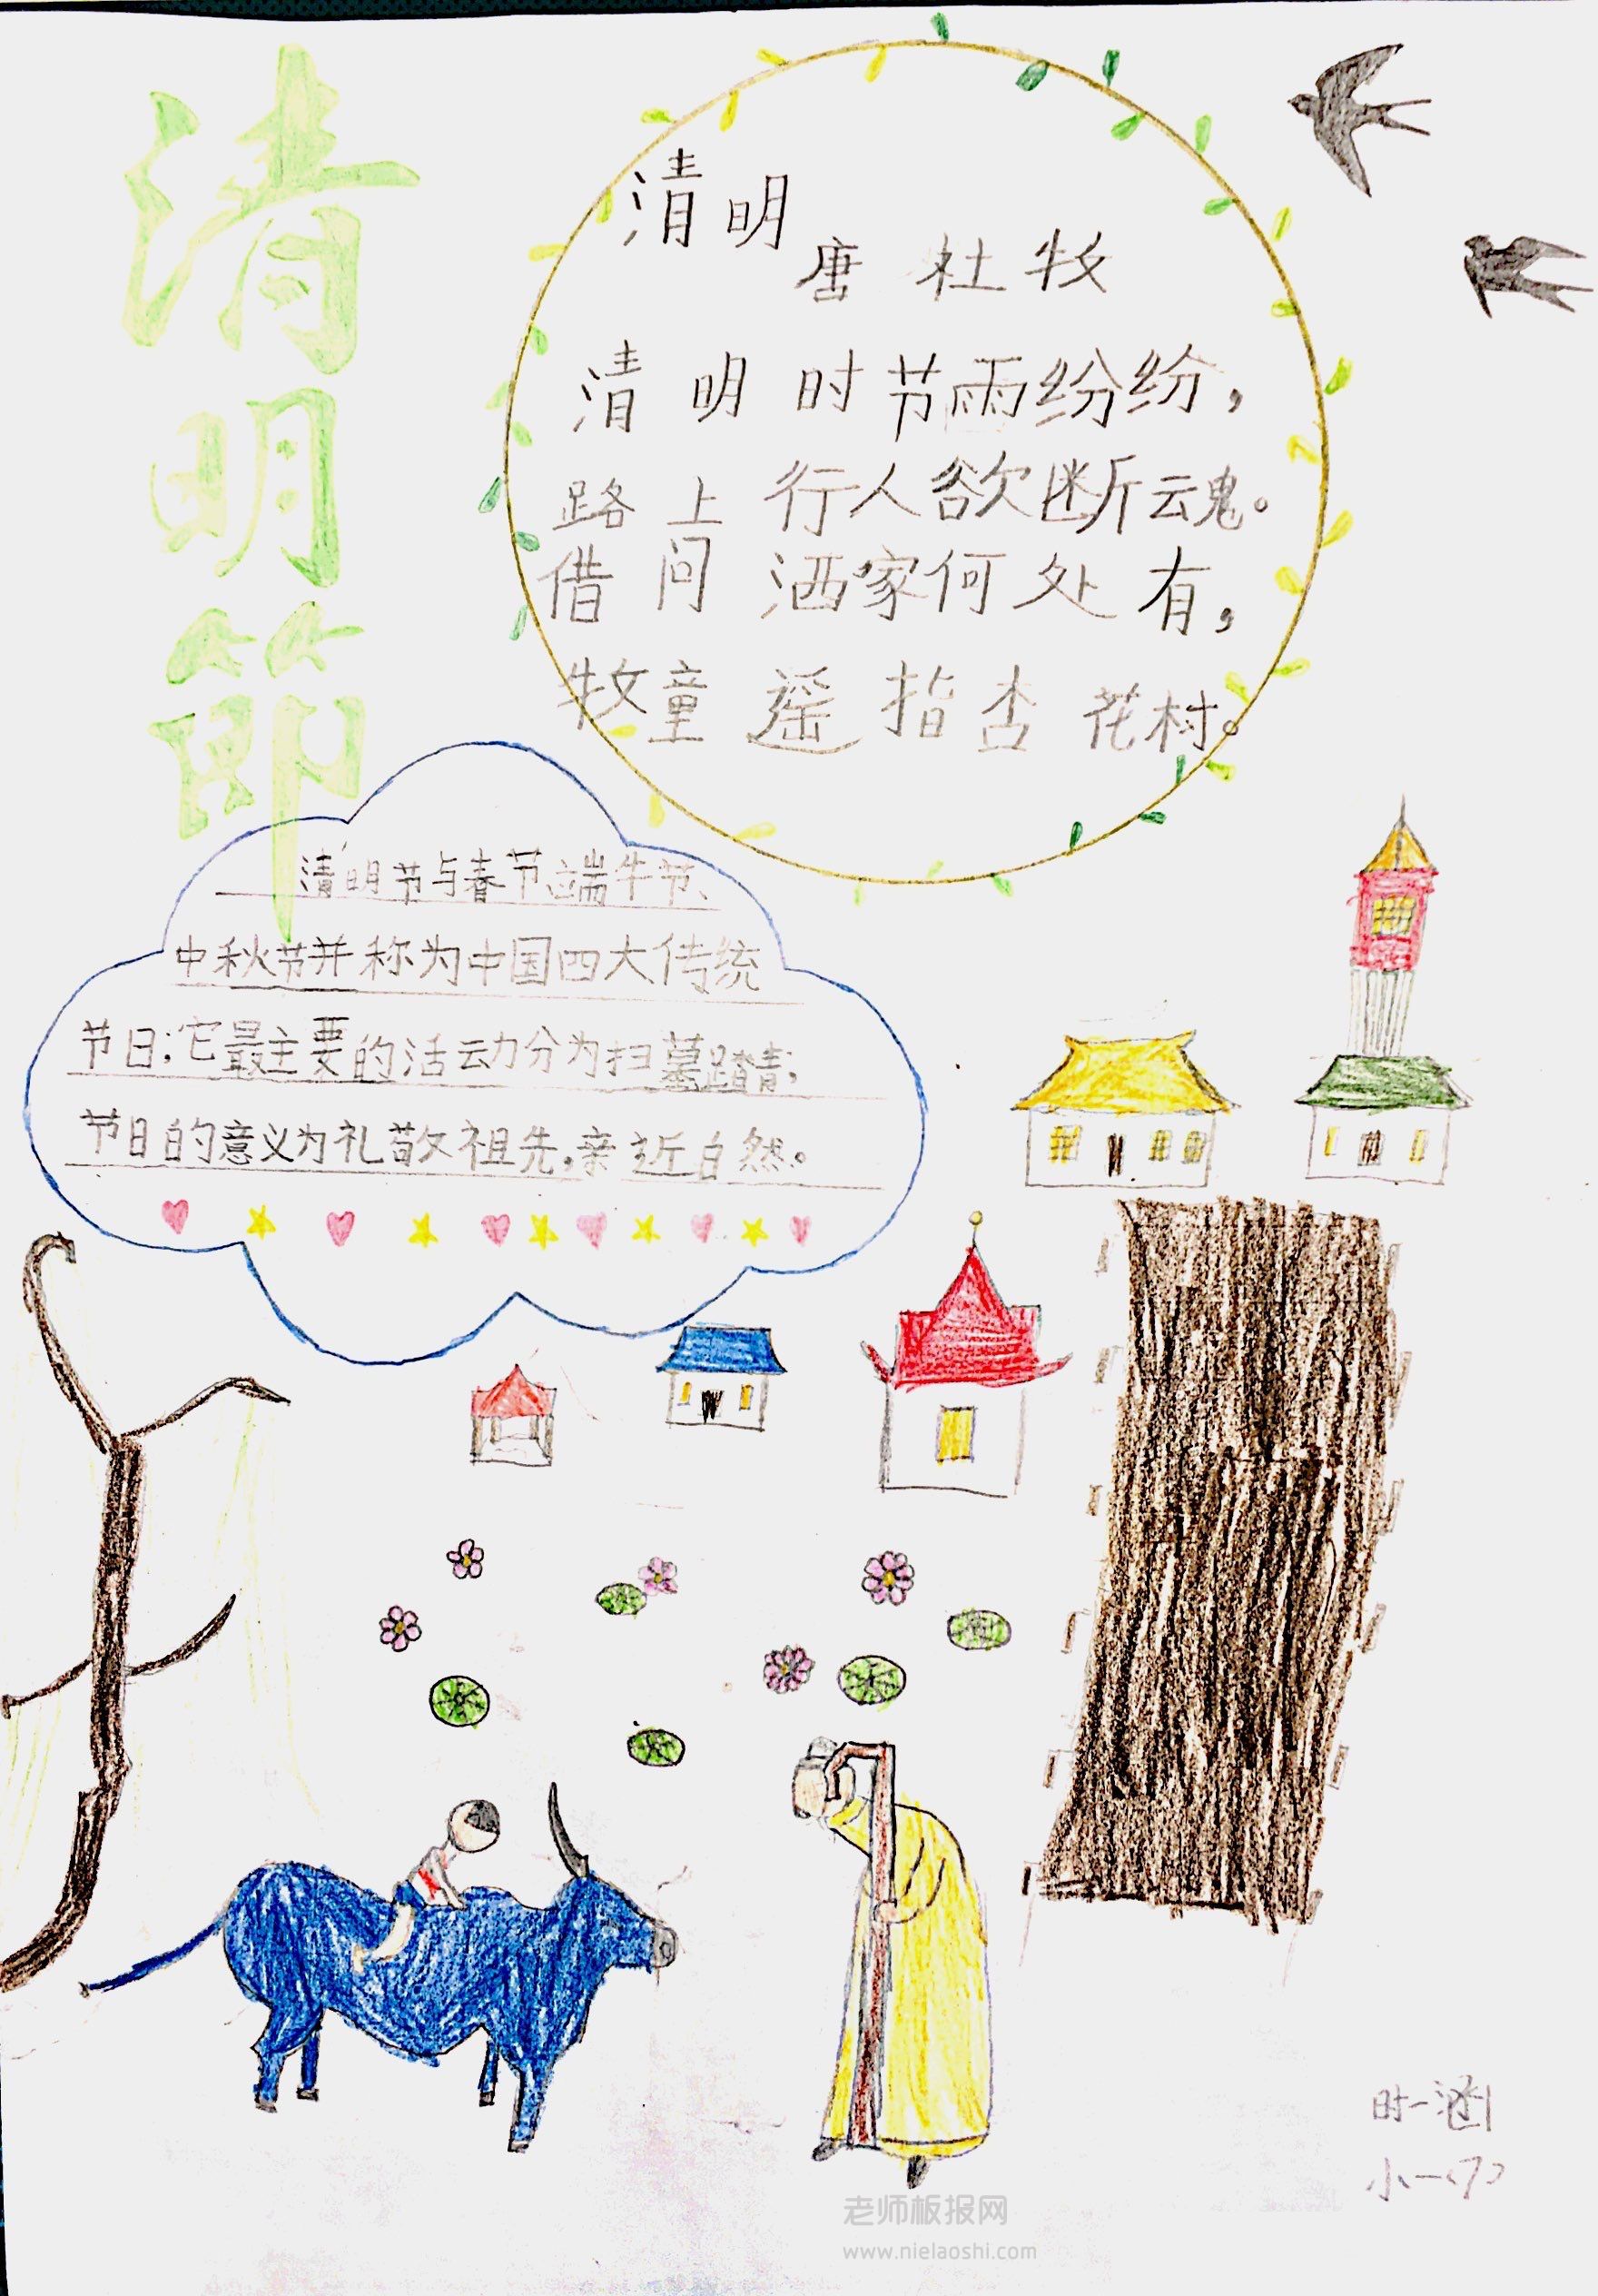 清明節
清明
唐 杜牧
清明时节雨纷纷，
路上行人欲断云魂。
借问洒家何处有，
牧童遥指杏花村。
清明节与春节、端午节、
中秋节并称为中国四大传统
节日；它最主要的活动分为扫墓踏青；
节日的意义为礼敬祖先，亲近自然。
时一涵
小一（7）
老师板报网
www.nielaoshi.com